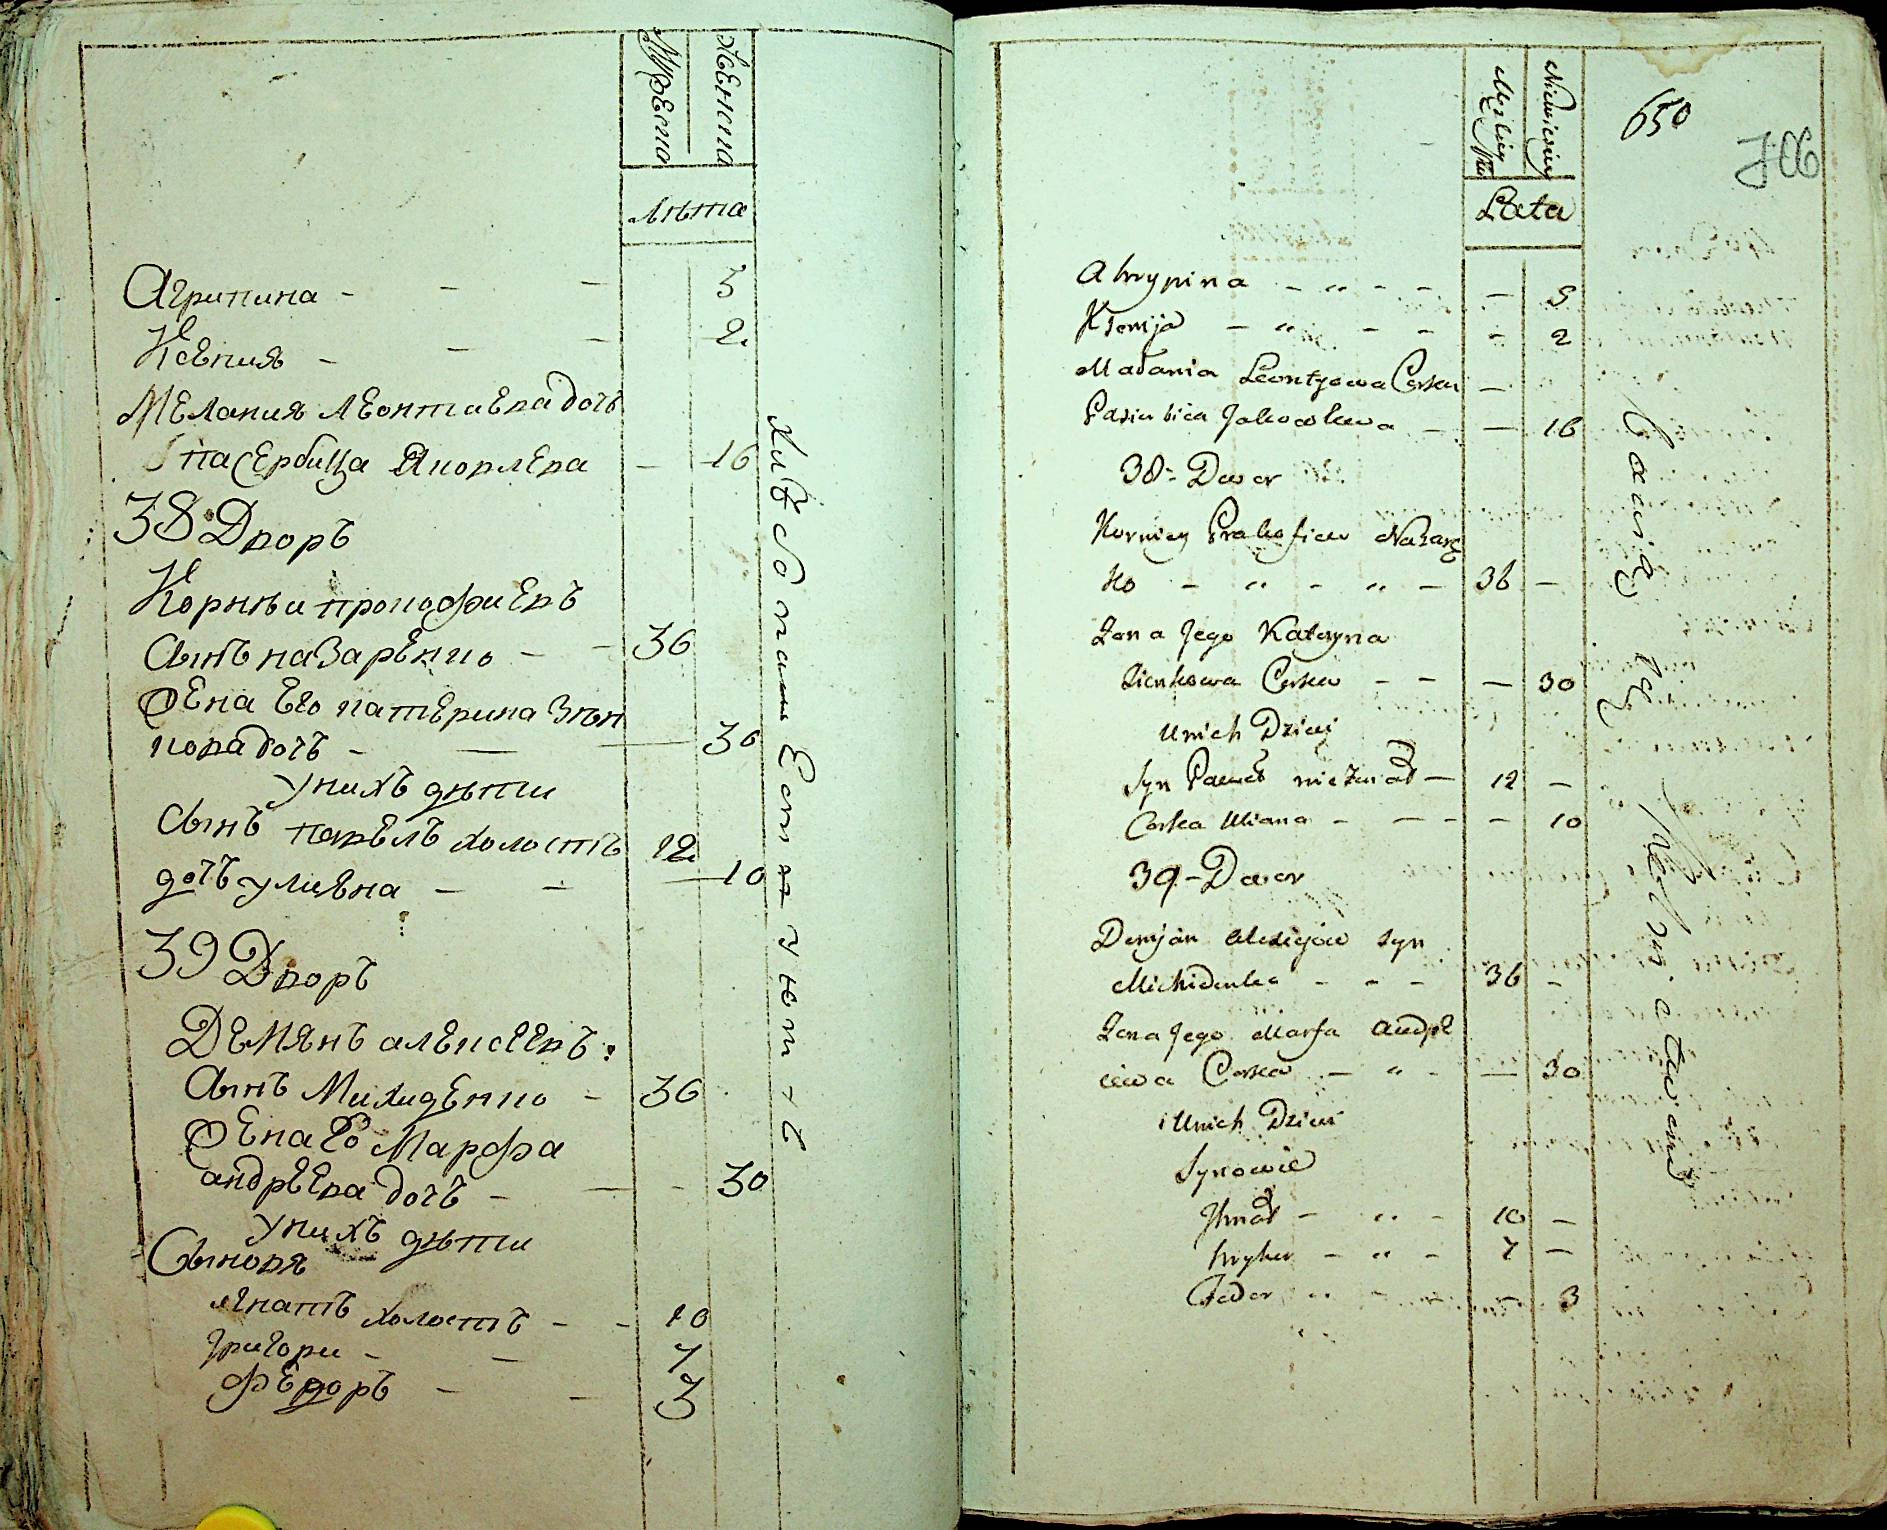 Мужеска
Женска
Лѣта
Агрипина - - - 3
Ксения - - - 2
Мелания леонтиева дочь
пасербица Яковлева - 16
38 Дворъ
Корнѣи прокофиевъ
Сынъ назаренко - - 36
Жена Его катерина Зѣн
кова дочь - — — 30
У нихъ дѣти
Сынъ павелъ холостъ 12
дочь улиена - - — 10
39 Дворъ
Демянъ алексеевъ
Сынъ Михиденко - 36
Жена Его Марфа
андреева дочь - — - 30
У нихъ дѣти
Сыновя
игнатъ холостъ - - 10
григори - - 7
федоръ - - 3
650
Lata
Ahrypina - „ - - - 5
Ksenija - „ - - - 2
Małania Leontyowa Corka -
Pasierbica Jakowlewa - - 16
38 - Dwor
Korniey Prakofiew Nazarę
ko - „ - „ - 36 -
Żona Jego Kateryna
Zienkowa Corka - - - 30
U nich Dzieci
Syn Paweł nieżonat - 12 -
Corka Uliana - - - - 10
39 - Dwor
Demjan Alexiejow syn
Michidenko - - - 36 -
Żona Jego Marfa Andre
iewa Corka - „ - - 30
U nich Dzieci
Synowie
Ihnat - „ - 10 -
Hryhor - „ - 7 -
Fedor „ - - 3